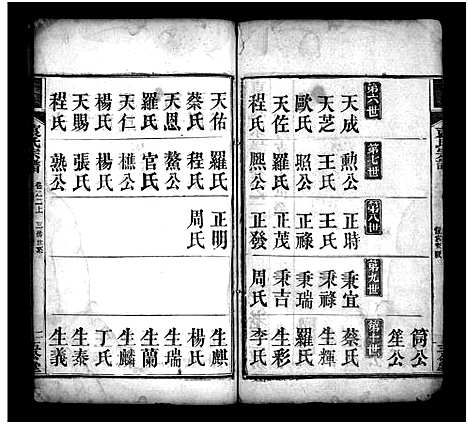 筒公
笙公
第六世 第七世 第八世 第九世 第十世
天成 勲公 正時 秉宜 蔡氏
天芝 王氏 王氏 秉祿 生輝
歐氏 照公 正祿 秉瑞 羅氏
天佐 羅氏 正茂 秉吉 生彩
程氏 公 正發 周氏 李氏
天佑 羅氏 正明 生麒
蔡氏 程氏 周氏 楊氏
天恩 鰲公 生瑞
羅氏 官氏 生蘭
天仁 樵公 生麟
楊氏 楊氏 丁氏
天賜 張氏 生泰
程氏 熟公 生義
氏宗譜 卷之二上